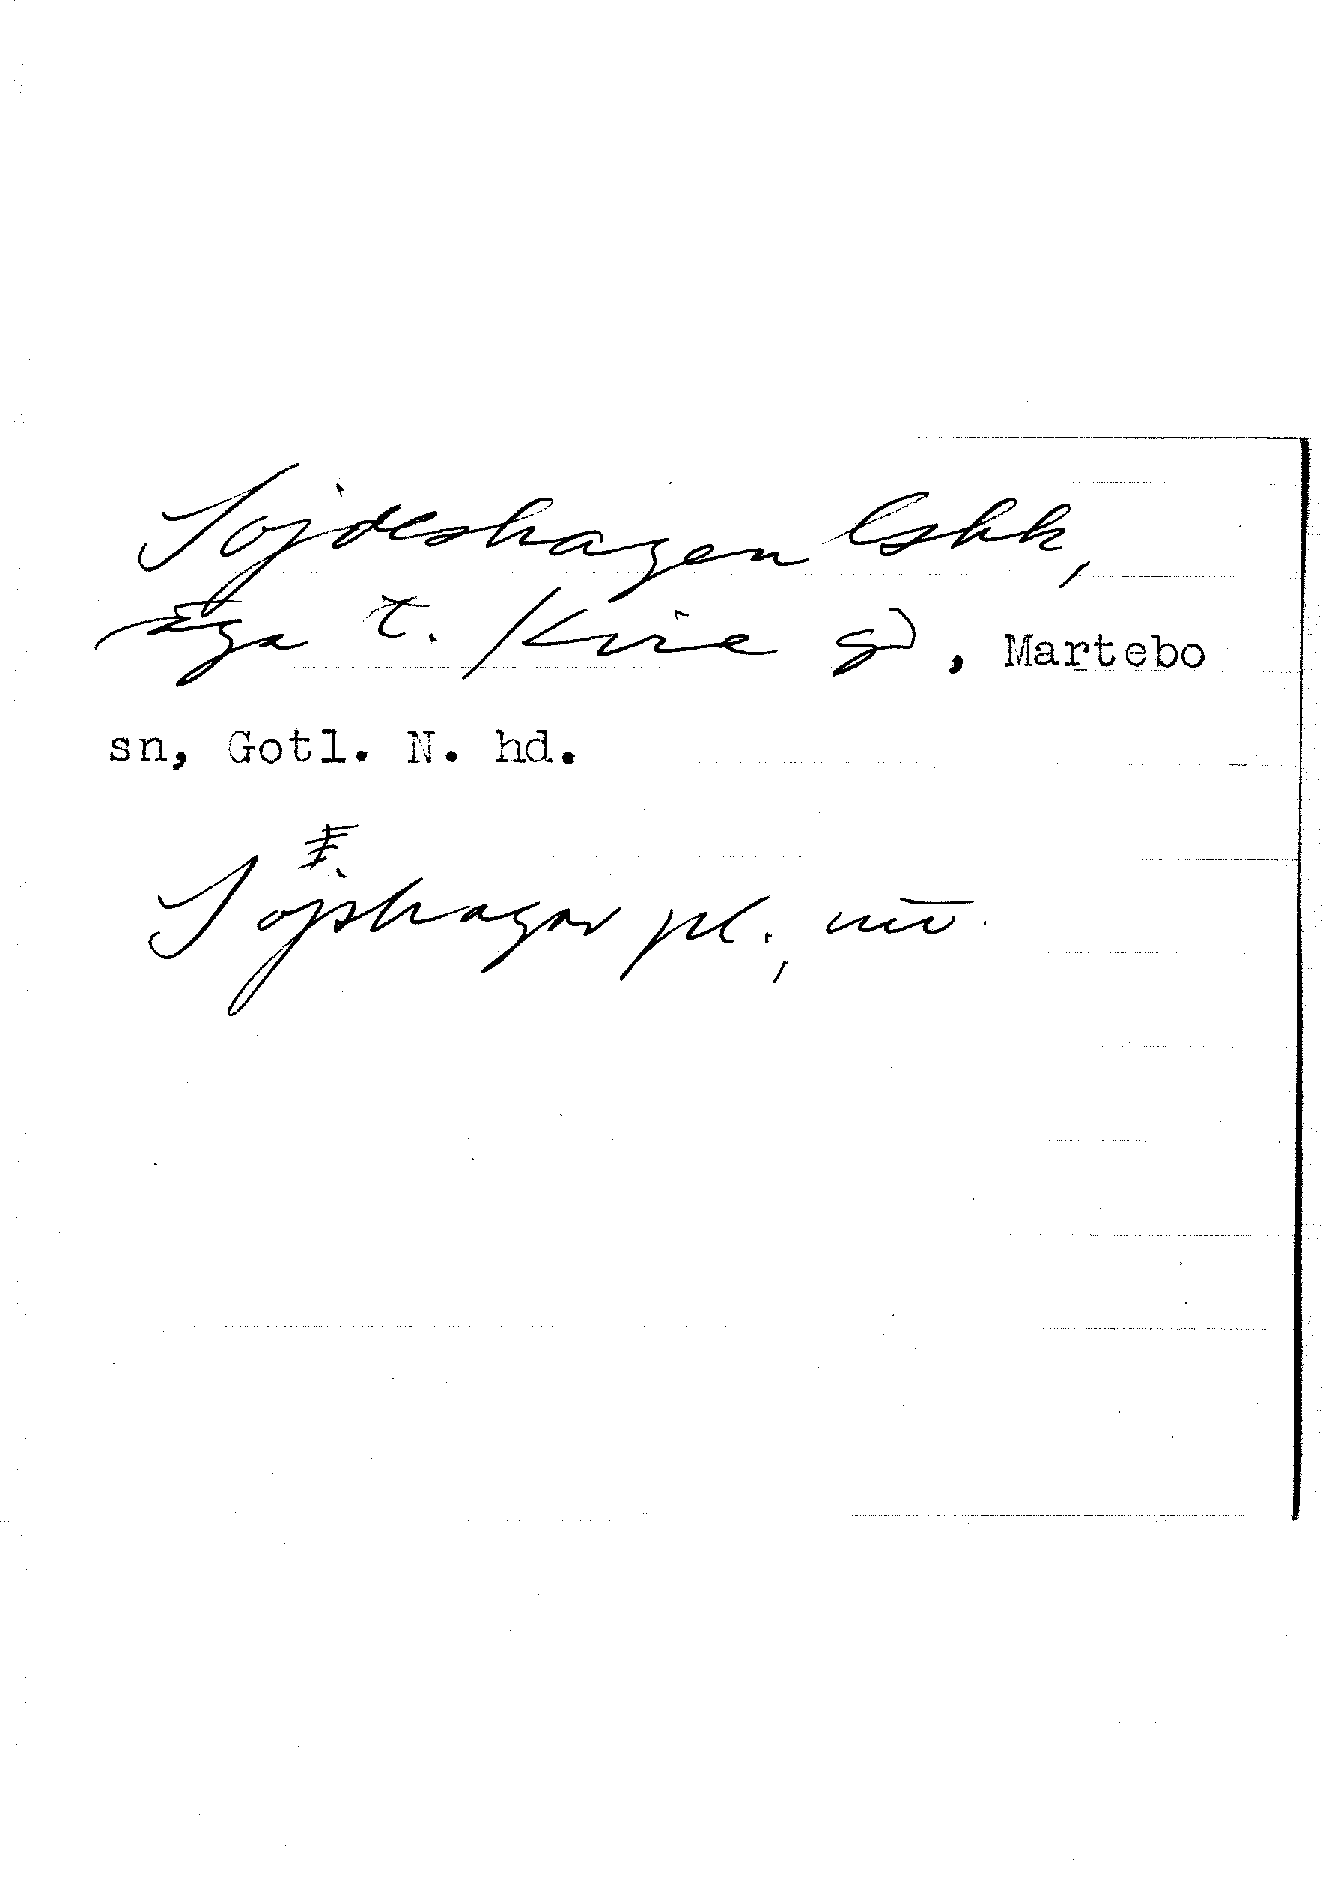 Sojdeshagen lshk,
äga t. Kvie gd, Martebo
sn, Gotl. N. hd.
Sojshagar pl.,